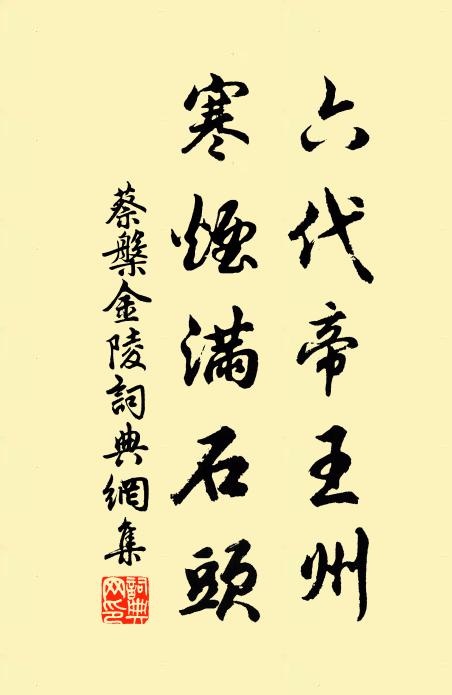 六代帝王州
寒煙滿石頭
蔡槃金陵詞典網集
詞典
网印